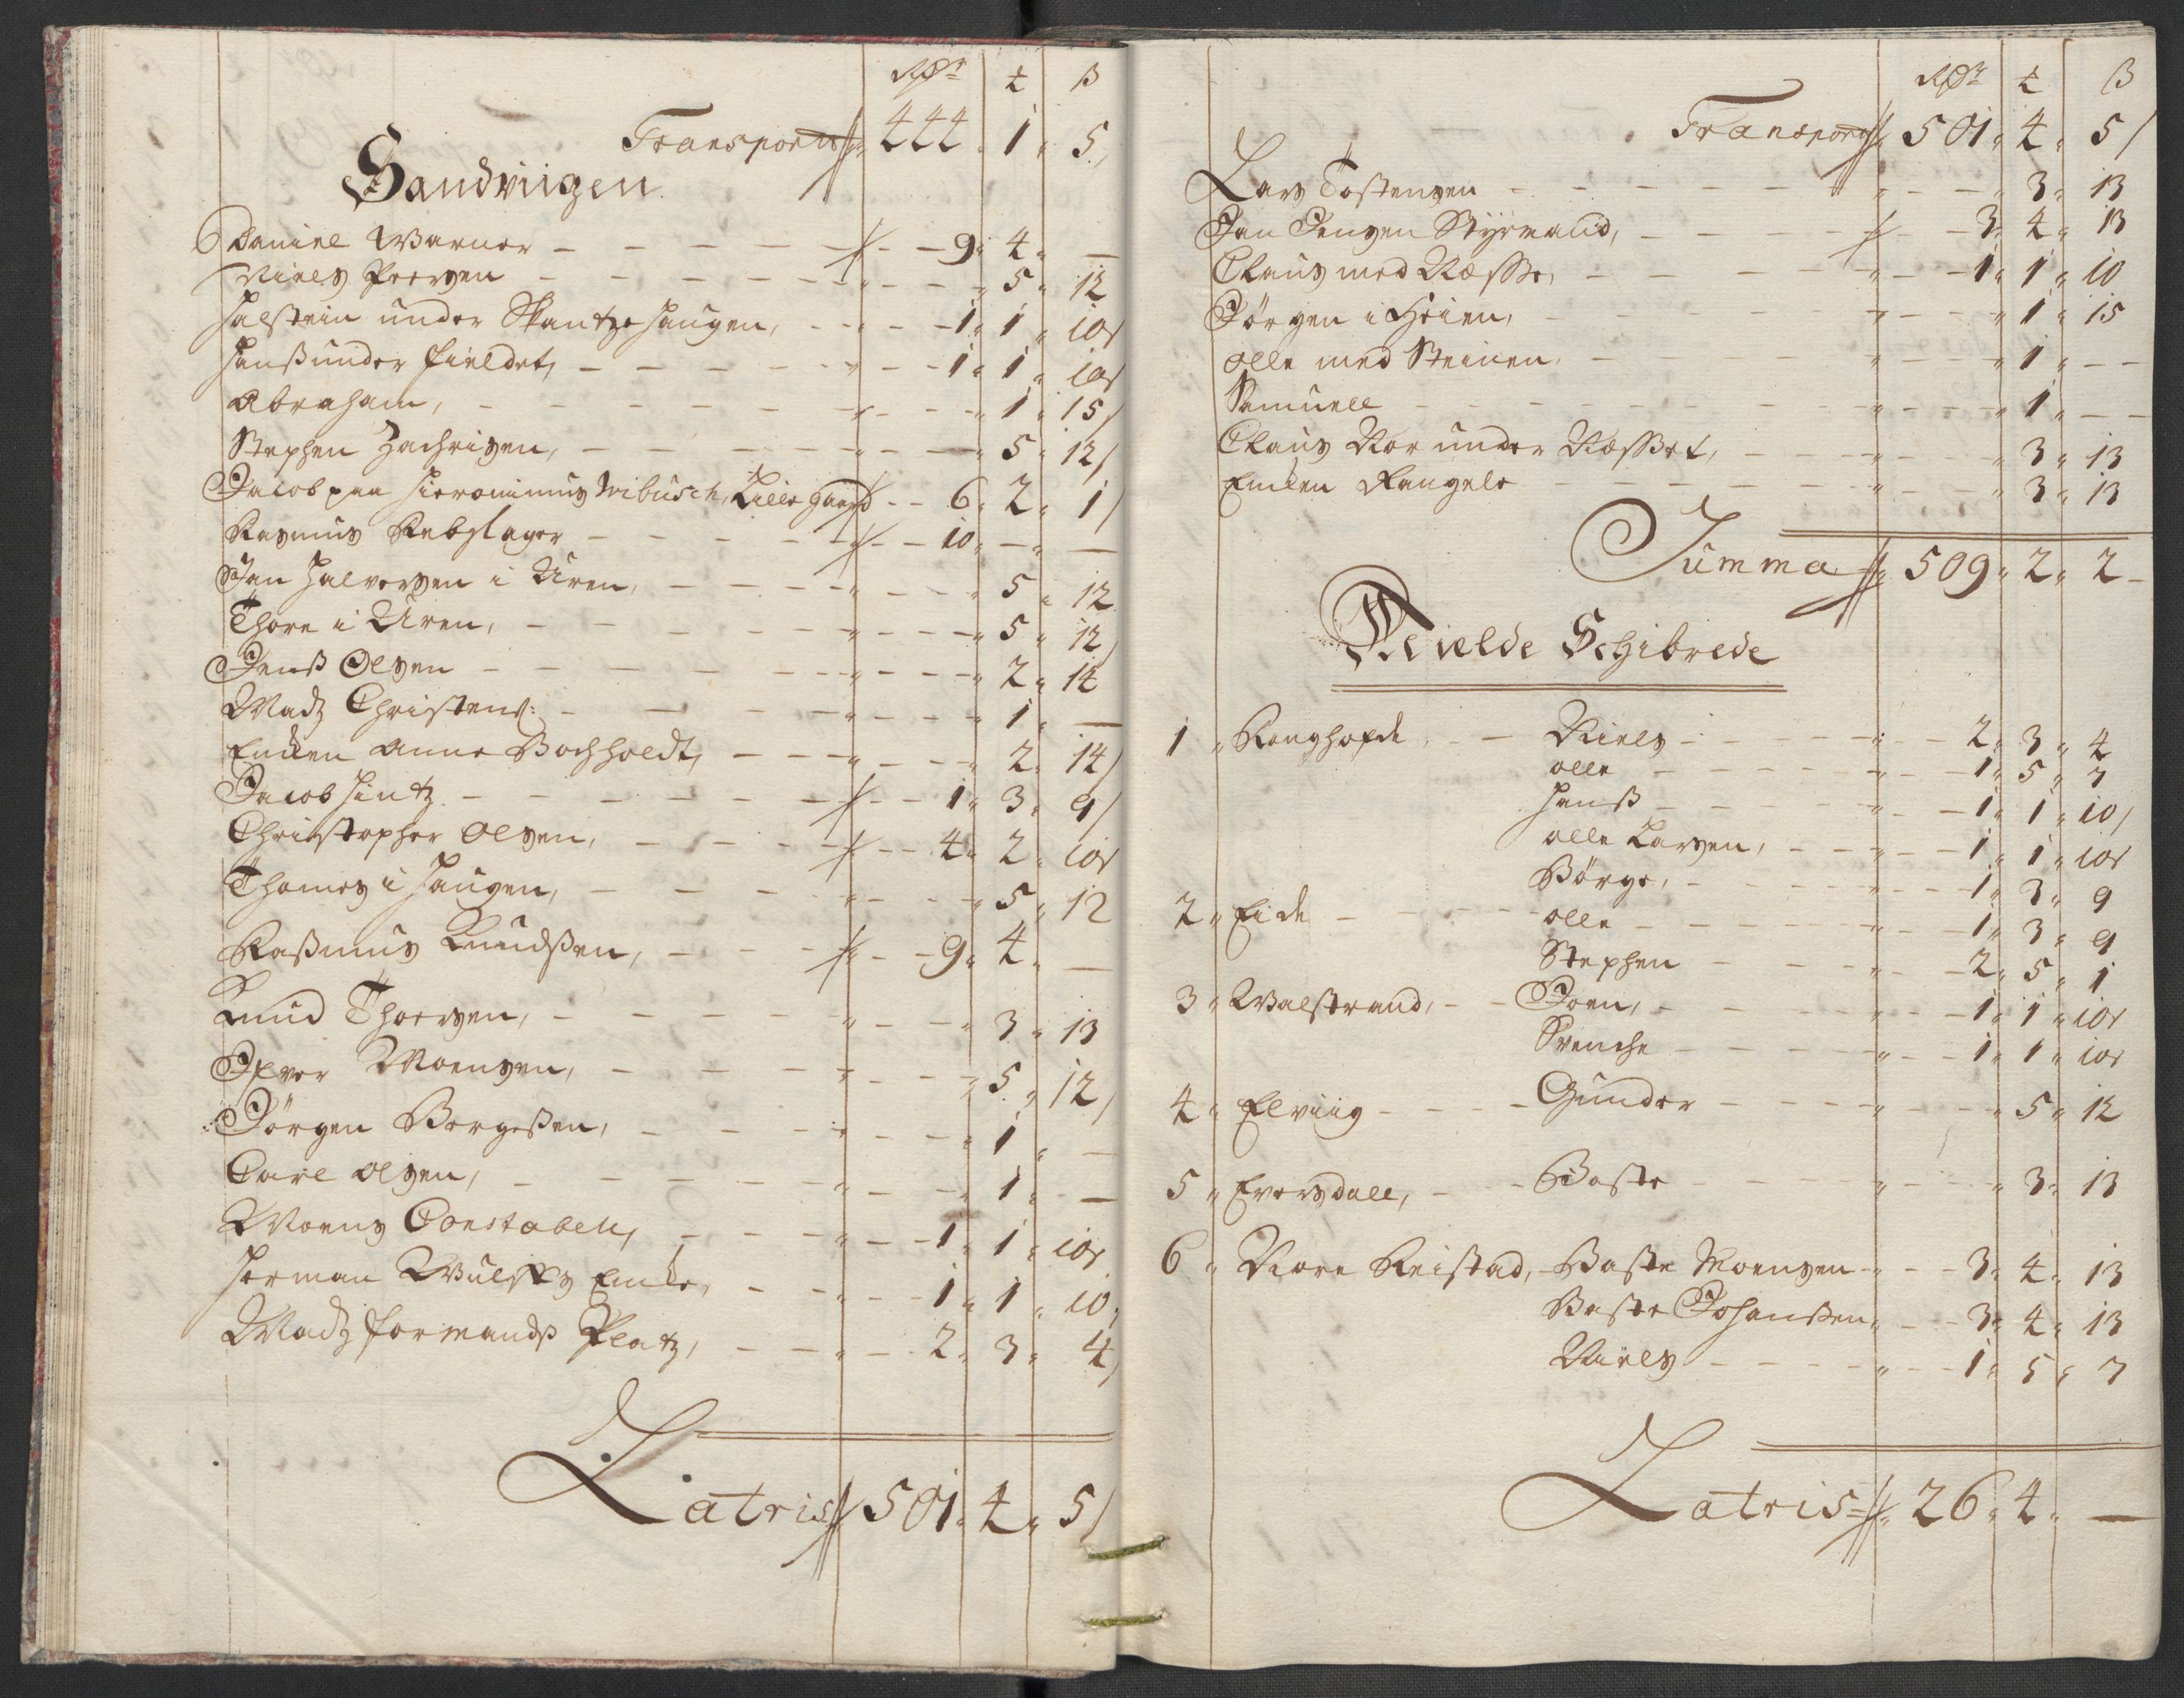 Rdr ƚ ß
Transport 444 1 5
Sandviigen
Daniel Warner - - 9 4 -
Niels Persen - - 5 12
Halstein under Skantze Haugen, - - 1 1 10
Hanß under Fieldet, - - 1 1 10
Abraham, - - 1 15
Stephen Zachrisen, - - 5 12
Jacob paa Hieronimus Wibusch, Lille gaard - - 6 2 1
Rasmus Rebslager - - 10 - -
Jan Halvorsen i Uren, - - 5 12
Thore i Uren, - - 5 12
Jenß Olsen - - 2 14
Madz Christens: - - 1 -
Encken Anne Bochholdt, - - 2 14
Jacob Hintz - - 1 3 9
Christopher Olsen, - - 4 2 10
Thomes i Haugen, - - 5 12
Raßmus Knudßen, - - 9 4 -
Knud Thorsen, - - 3 13
Iver Monsen, - - 5 12
Jörgen Borgeßen, - - 1 -
Carl Olsen, - - 1 -
Moens Constabell, - - 1 1 10
Herman Wulffs Encke, - - 1 1 10
Madz Formands Platz, - - 2 3 4
Latris 501 4 5
Rdr ƚ ß
Transport 501 4 5
Lars Tostensen - - 3 13
Jan Jensen Styrmand, - - 3 4 13
Claus med Næsse, - - 1 1 10
Jörgen i Heien, - - 1 15
Olle med Steinen - - 1 - -
Samuell - - 1 - -
Claus Nor under Næsset, - - 3 13
Encken Rangele - - 3 13
Summa 509 2 2
Schibrede
1 Ronghofde - - Niels - - 2 3 4
Olle - - 1 5 7
Hanß - - 1 1 10
Olle Larsen, - - 1 1 10
Börge, - - 1 3 9
2 Eide - - Olle - - 1 3 9
Stephen - - 2 5 1
3 Walstrand, - - Joen, - - 1 1 10
Svenche - - 1 1 10
4 Elviig - - Gunder - - 5 12
5 Eversdall, - - Baste - - 3 13
6 Nore Reistad, - Baste Monsen - - 3 4 13
Baste Johanßen - - 3 4 13
Niels - - 1 5 7
Latris 26 4 -